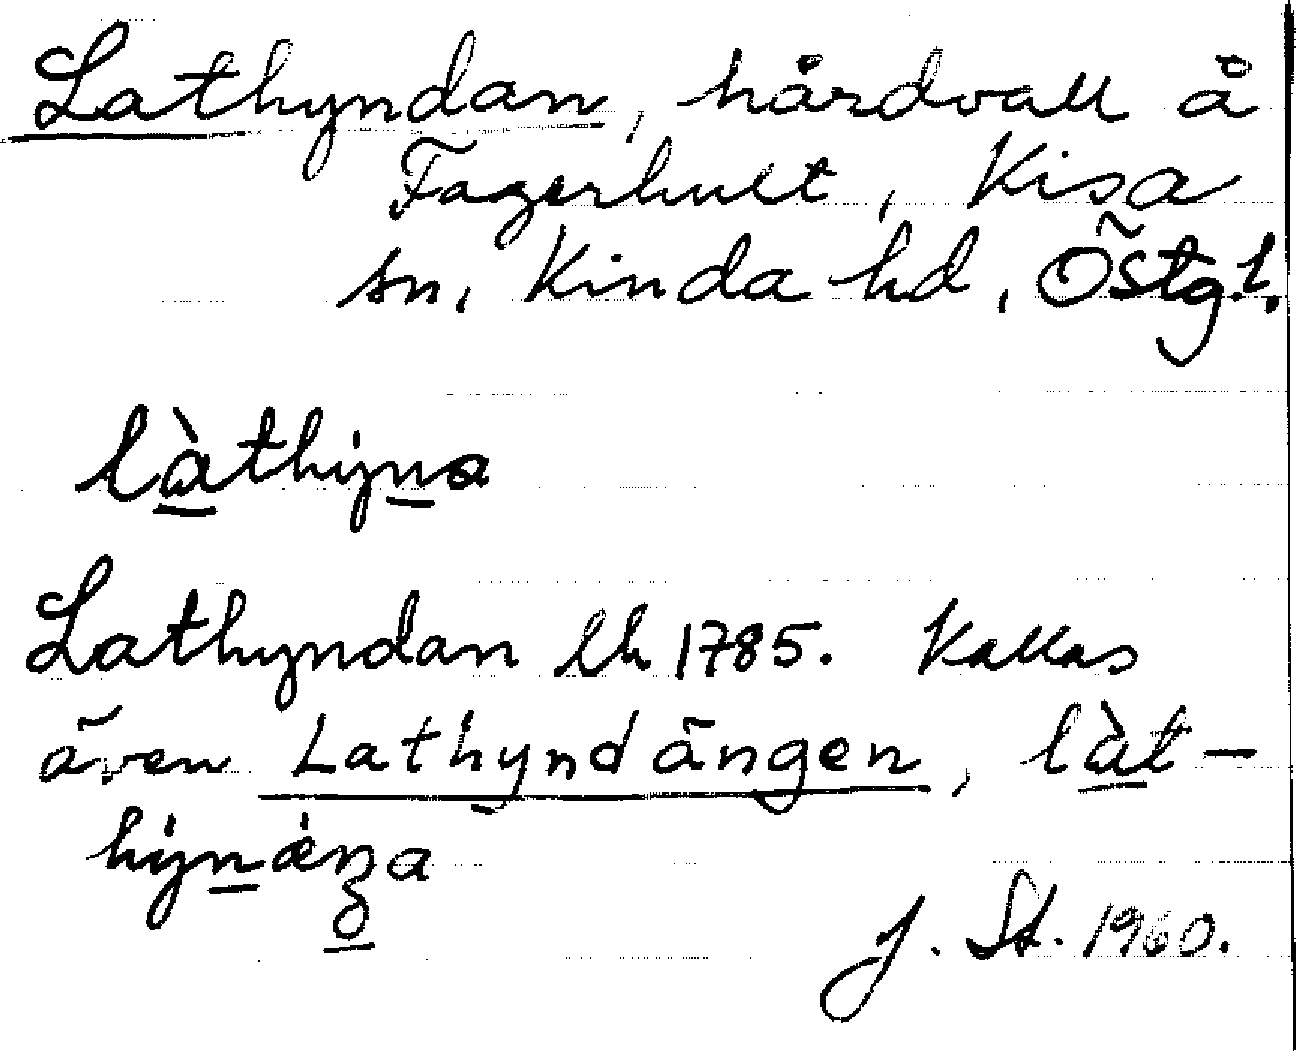 Lathyndan, hårdvall å
Fagerhult, Kisa
sn, Kinda hd, Östg.l.
làthy̍na
Lathyndan lh 1785. Kallas
även Lathyndängen, làt-
hy̍næ̍ŋa
J. St. 1960.